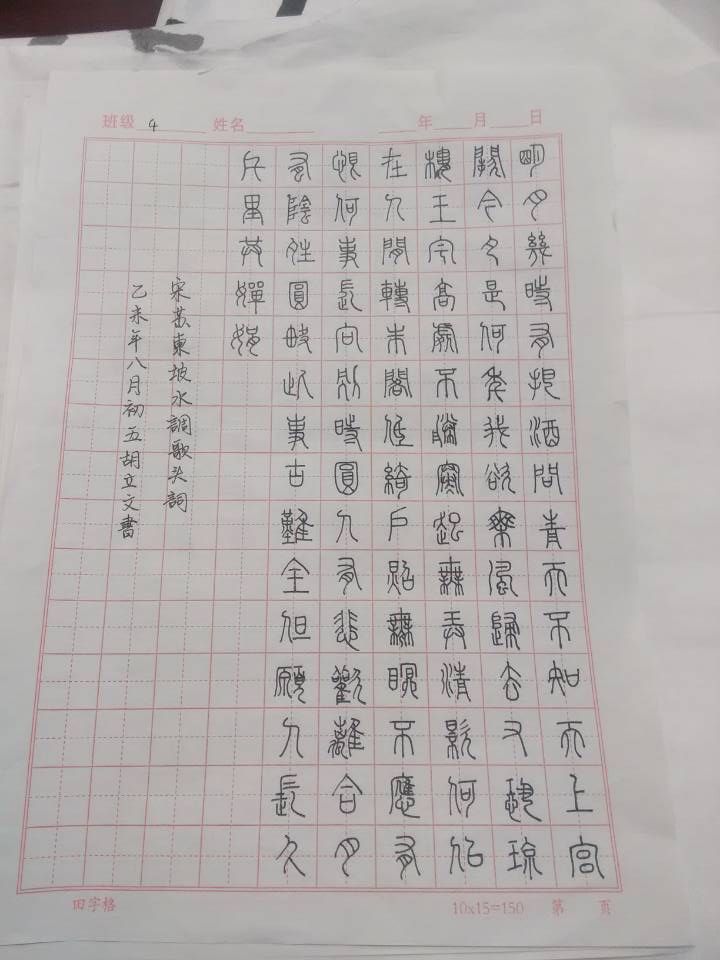 班级 4 姓名 年 月 日
明月幾時有把酒問青天不知天上宮
闕今夕是何年我欲乘風歸去又恐瓊
樓玉宇高處不勝寒起舞弄清影何似
在人間轉朱閣低綺戶照無眠不應有
恨何事長向別時圓人有悲歡離合月
有陰晴圓缺此事古難全但願人長久
千里共嬋娟
宋蘇東坡水調歌头詞
乙未年八月初五胡立文書
田字格 10x15=150 第 页